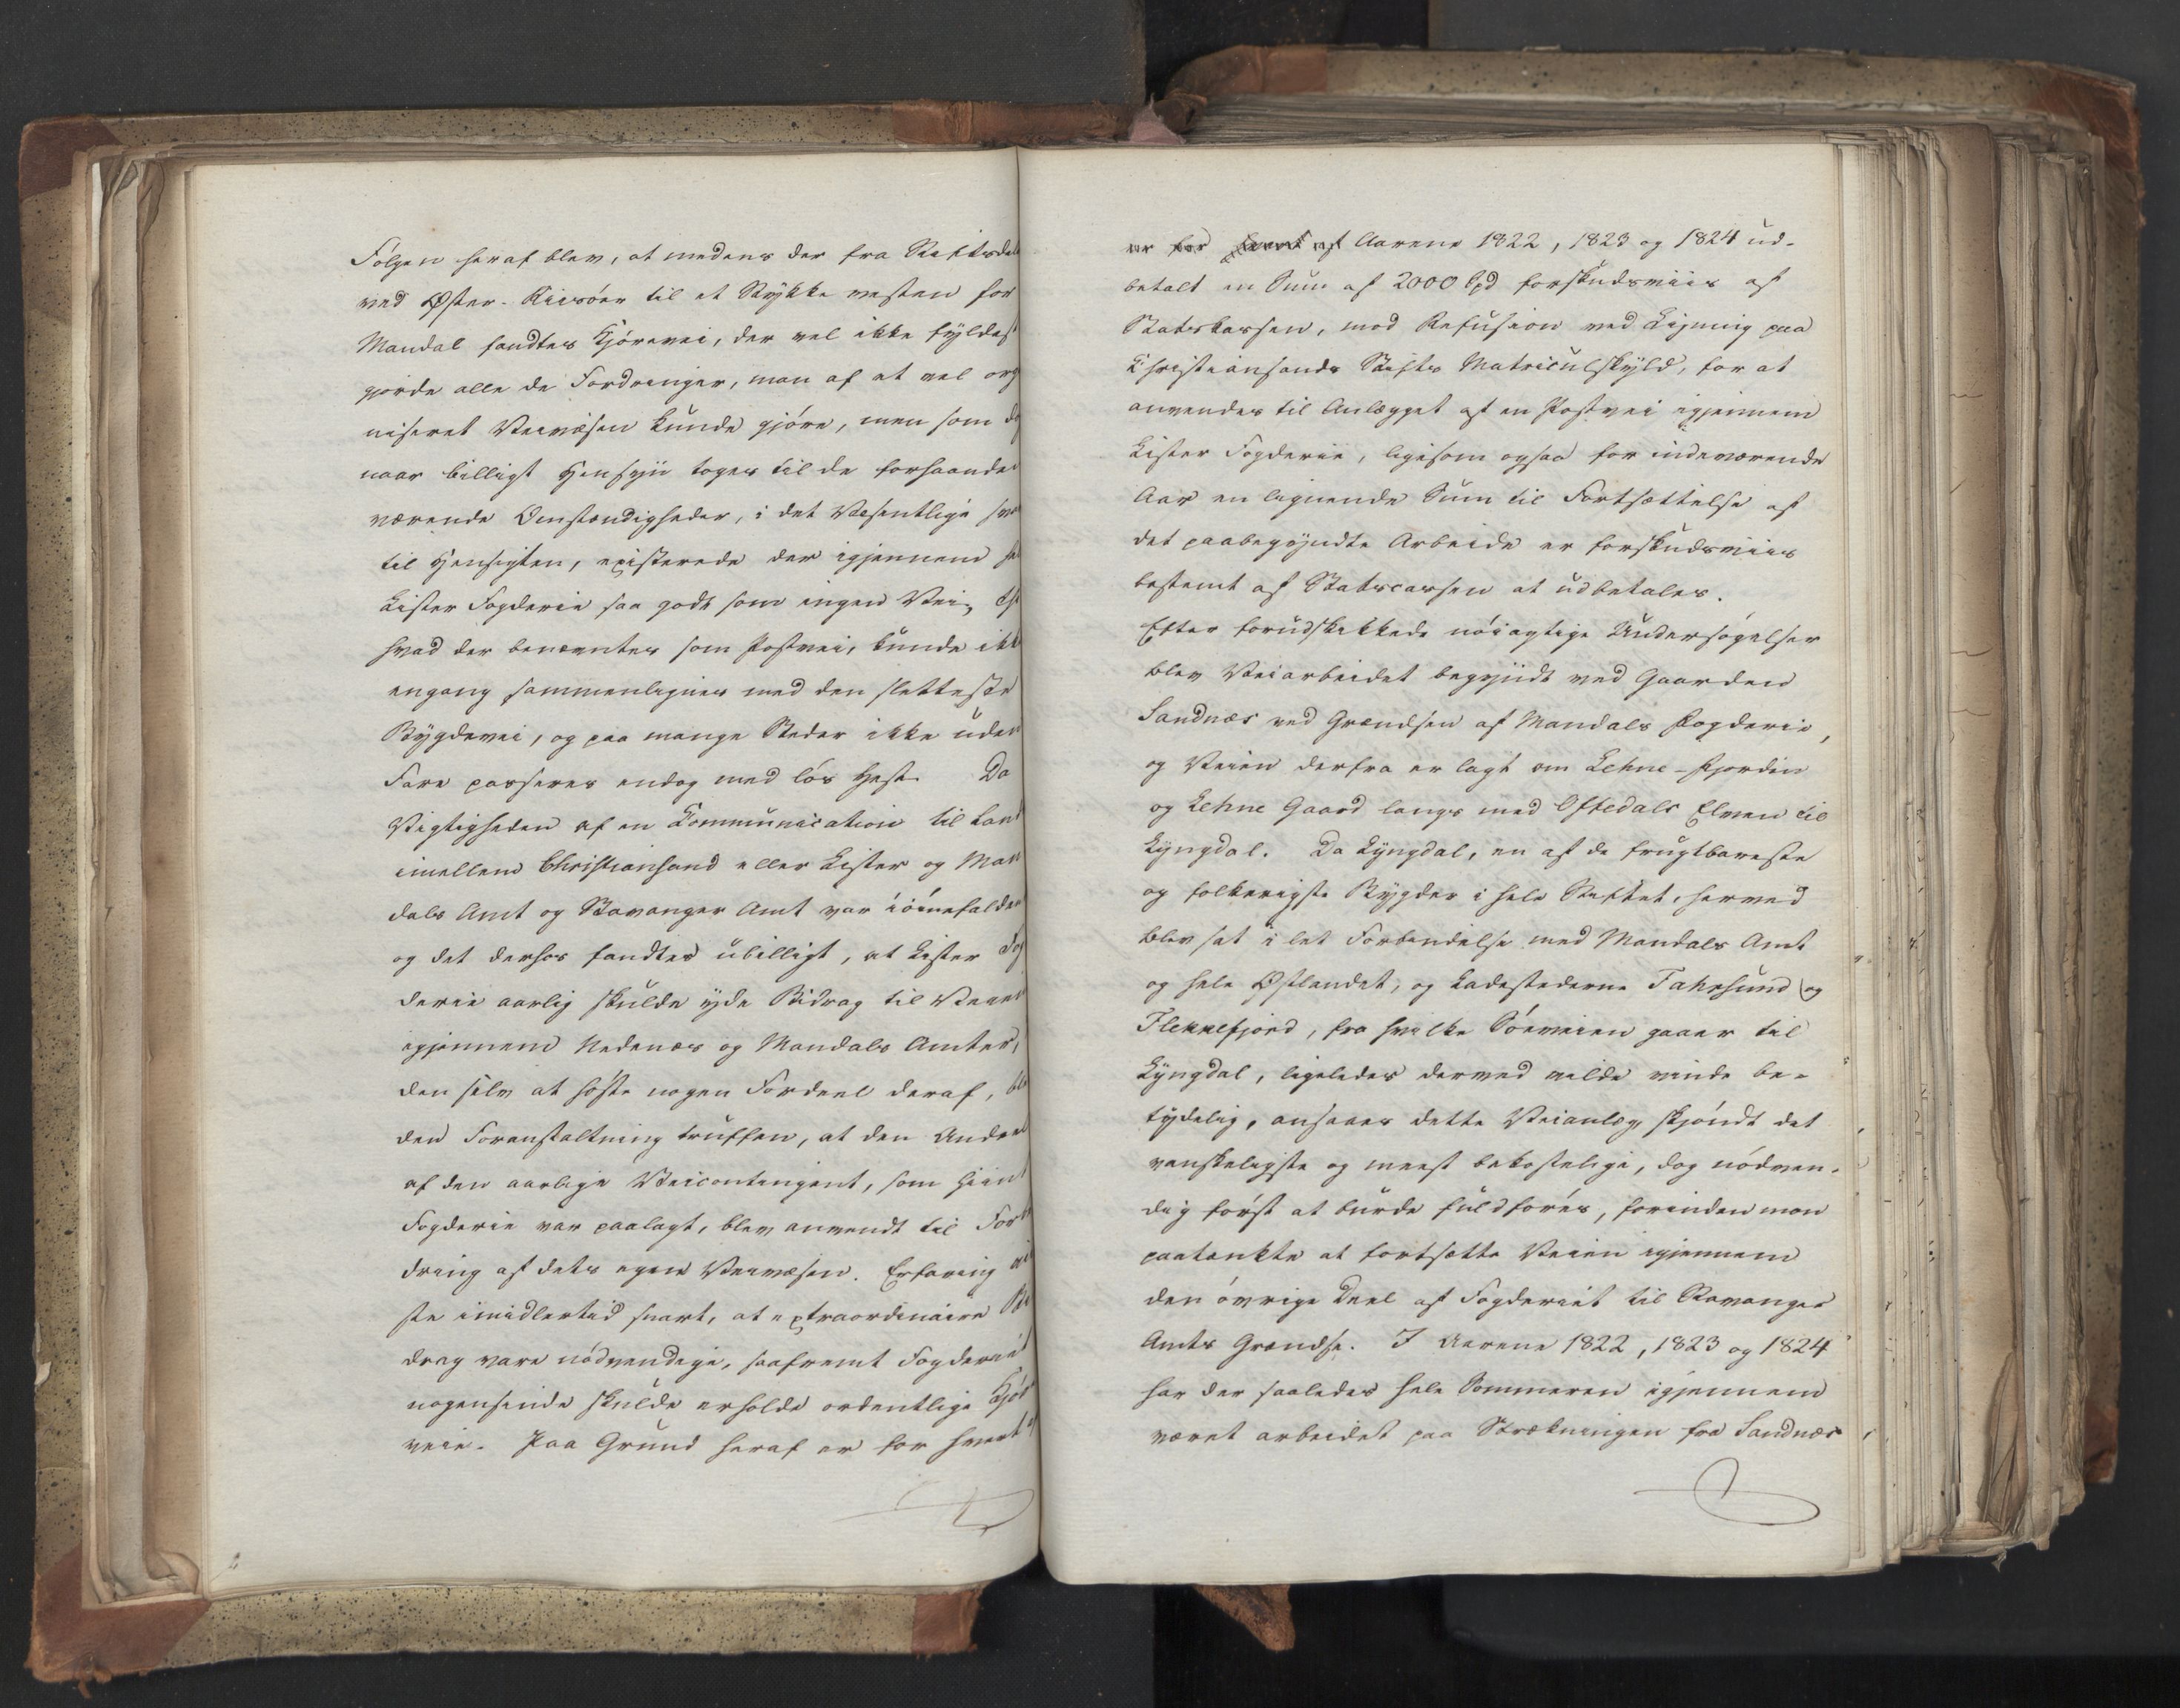 Følgen heraf blev, at medens der fra Stiftsdel
ved Øster-Riisöer til et Stykke vesten for
Mandal fandtes Kjörevei, der vel ikke fyldest
gjorde alle de Fordringer, man af et vel orga
niseret Veivæsen kunde gjöre, men som dog
naar billigt Hensyn toges til de forhaanden
værende Omstændigheder, i det Væsentlige sva
til Hensigten, existerede der igjennem he
Lister Fogderie saa godt som ingen Vei, th
hvad der benævntes som Postvei, kunde ikk
engang sammenlignes med den sletteste
Bygdevei, og paa mange Steder ikke uden
Fare passeres endog med lös Hest. Da
Vigtigheden af en Communication til Land
imellem Christiansand eller Lister og Man
dals Amt og Stavanger Amt var iöinefalden
og det derhos fandtes ubilligt, at Lister Fog
derie aarlig skulde yde Bidrag til Veien
igjennem Nedenæs og Mandals Amter,
den selv at höste nogen Fordeel deraf, ble
den Foranstaltning truffen, at den Andeel
af den aarlige Veicontingent, som hiint
Fogderie var paalagt, blev anvendt til For
dring af dets egen Veivæsen. Erfaring vi
ste imidlertid snart, at extraordinaire Bi
drag vare nödvendige, saafremt Fogderiet
nogensinde skulde erholde ordentlige Kjör
veie. Paa Grund heraf er for hvert af
er for hvert af Aarene 1822, 1823 og 1824 ud-
betalt en Sum af 2000 Spd forskudsviis af
Statskassen, mod Refusion ved Ligning paa
Christiansands Stifts Matriculskyld, for at
anvendes til Anlægget af en Postvei igjennem
Lister Fogderie, ligesom ogsaa for indeværende
Aar en lignende Sum til Fortsættelse af
det paabegyndte Arbeide er forskudsviis
bestemt af Statscassen at udbetales.
Efter forudskikkede nöiagtige Undersögelser
blev Veiarbeidet begyndt ved Gaarden
Sandnæs ved Grændsen af Mandals Fogderie,
og Veien derfra er lagt om Lehne-Fjorden
og Lehne Gaard langs med Oftedals Elven til
Lyngdal. Da Lyngdal, en af de frugtbareste
og folkerigste Bygder i hele Stiftet, herved
blev sat i let Forbindelse med Mandals Amt
og hele Østlandet, og Ladestederne Fahrsund og
Flekkefjord, fra hvilke Söeveien gaaer til
Lyngdal, ligeledes derved vilde vinde be-
tydelig, ansaaes dette Veianlæg, skjöndt det
vanskeligste og meest bekostelige, dog nödven-
dig först at burde fuldföres, forinden man
paatænkte at fortsætte Veien igjennem
den övrige Deel af Fogderiet til Stavanger
Amts Grændse. I Aarene 1822, 1823 og 1824
har der saaledes hele Sommeren igjennem
været arbeidet paa Strækningen fra Sandnæs
2